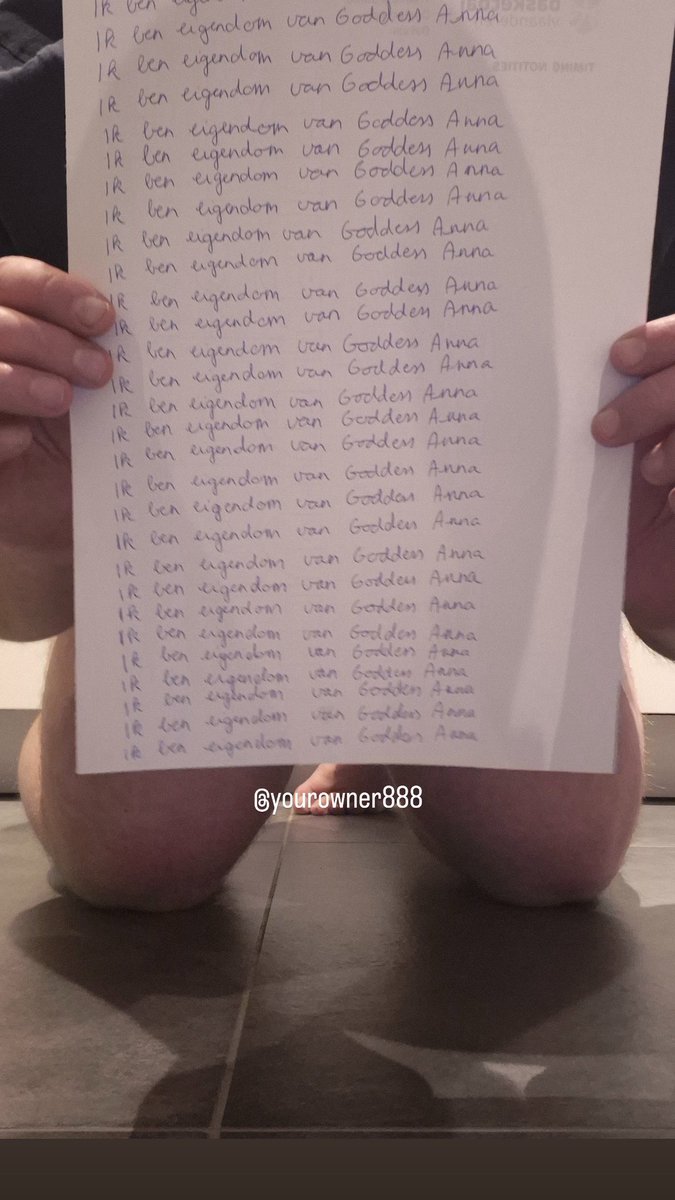 Ik ben
basketbal
IK ben eigendom van Goddess Anna
TIMING NOTITIES
IK ben eigendom van Goddess Anna
IK ben eigendom van Goddess Anna
IK ben eigendom van Goddess Anna
IK ben eigendom van Goddess Anna
IK ben eigendom van Goddess Anna
IK ben eigendom van Goddess Anna
IK ben eigendom van Goddess Anna
IK ben eigendom van Goddess Anna
IK ben eigendom van Goddess Anna
IK ben eigendom van Goddess Anna
IK ben eigendom van Goddess Anna
IK ben eigendom van Goddess Anna
IK ben eigendom van Goddess Anna
IK ben eigendom van Goddess Anna
IK ben eigendom van Goddess Anna
IK ben eigendom van Goddess Anna
IK ben eigendom van Goddess Anna
IK ben eigendom van Goddess Anna
IK ben eigendom van Goddess Anna
IK ben eigendom van Goddess Anna
IK ben eigendom van Goddess Anna
IK ben eigendom van Goddess Anna
IK ben eigendom van Goddess Anna
IK ben eigendom van Goddess Anna
IK ben eigendom van Goddess Anna
IK ben eigendom van Goddess Anna
IK ben eigendom van Goddess Anna
@yourowner888